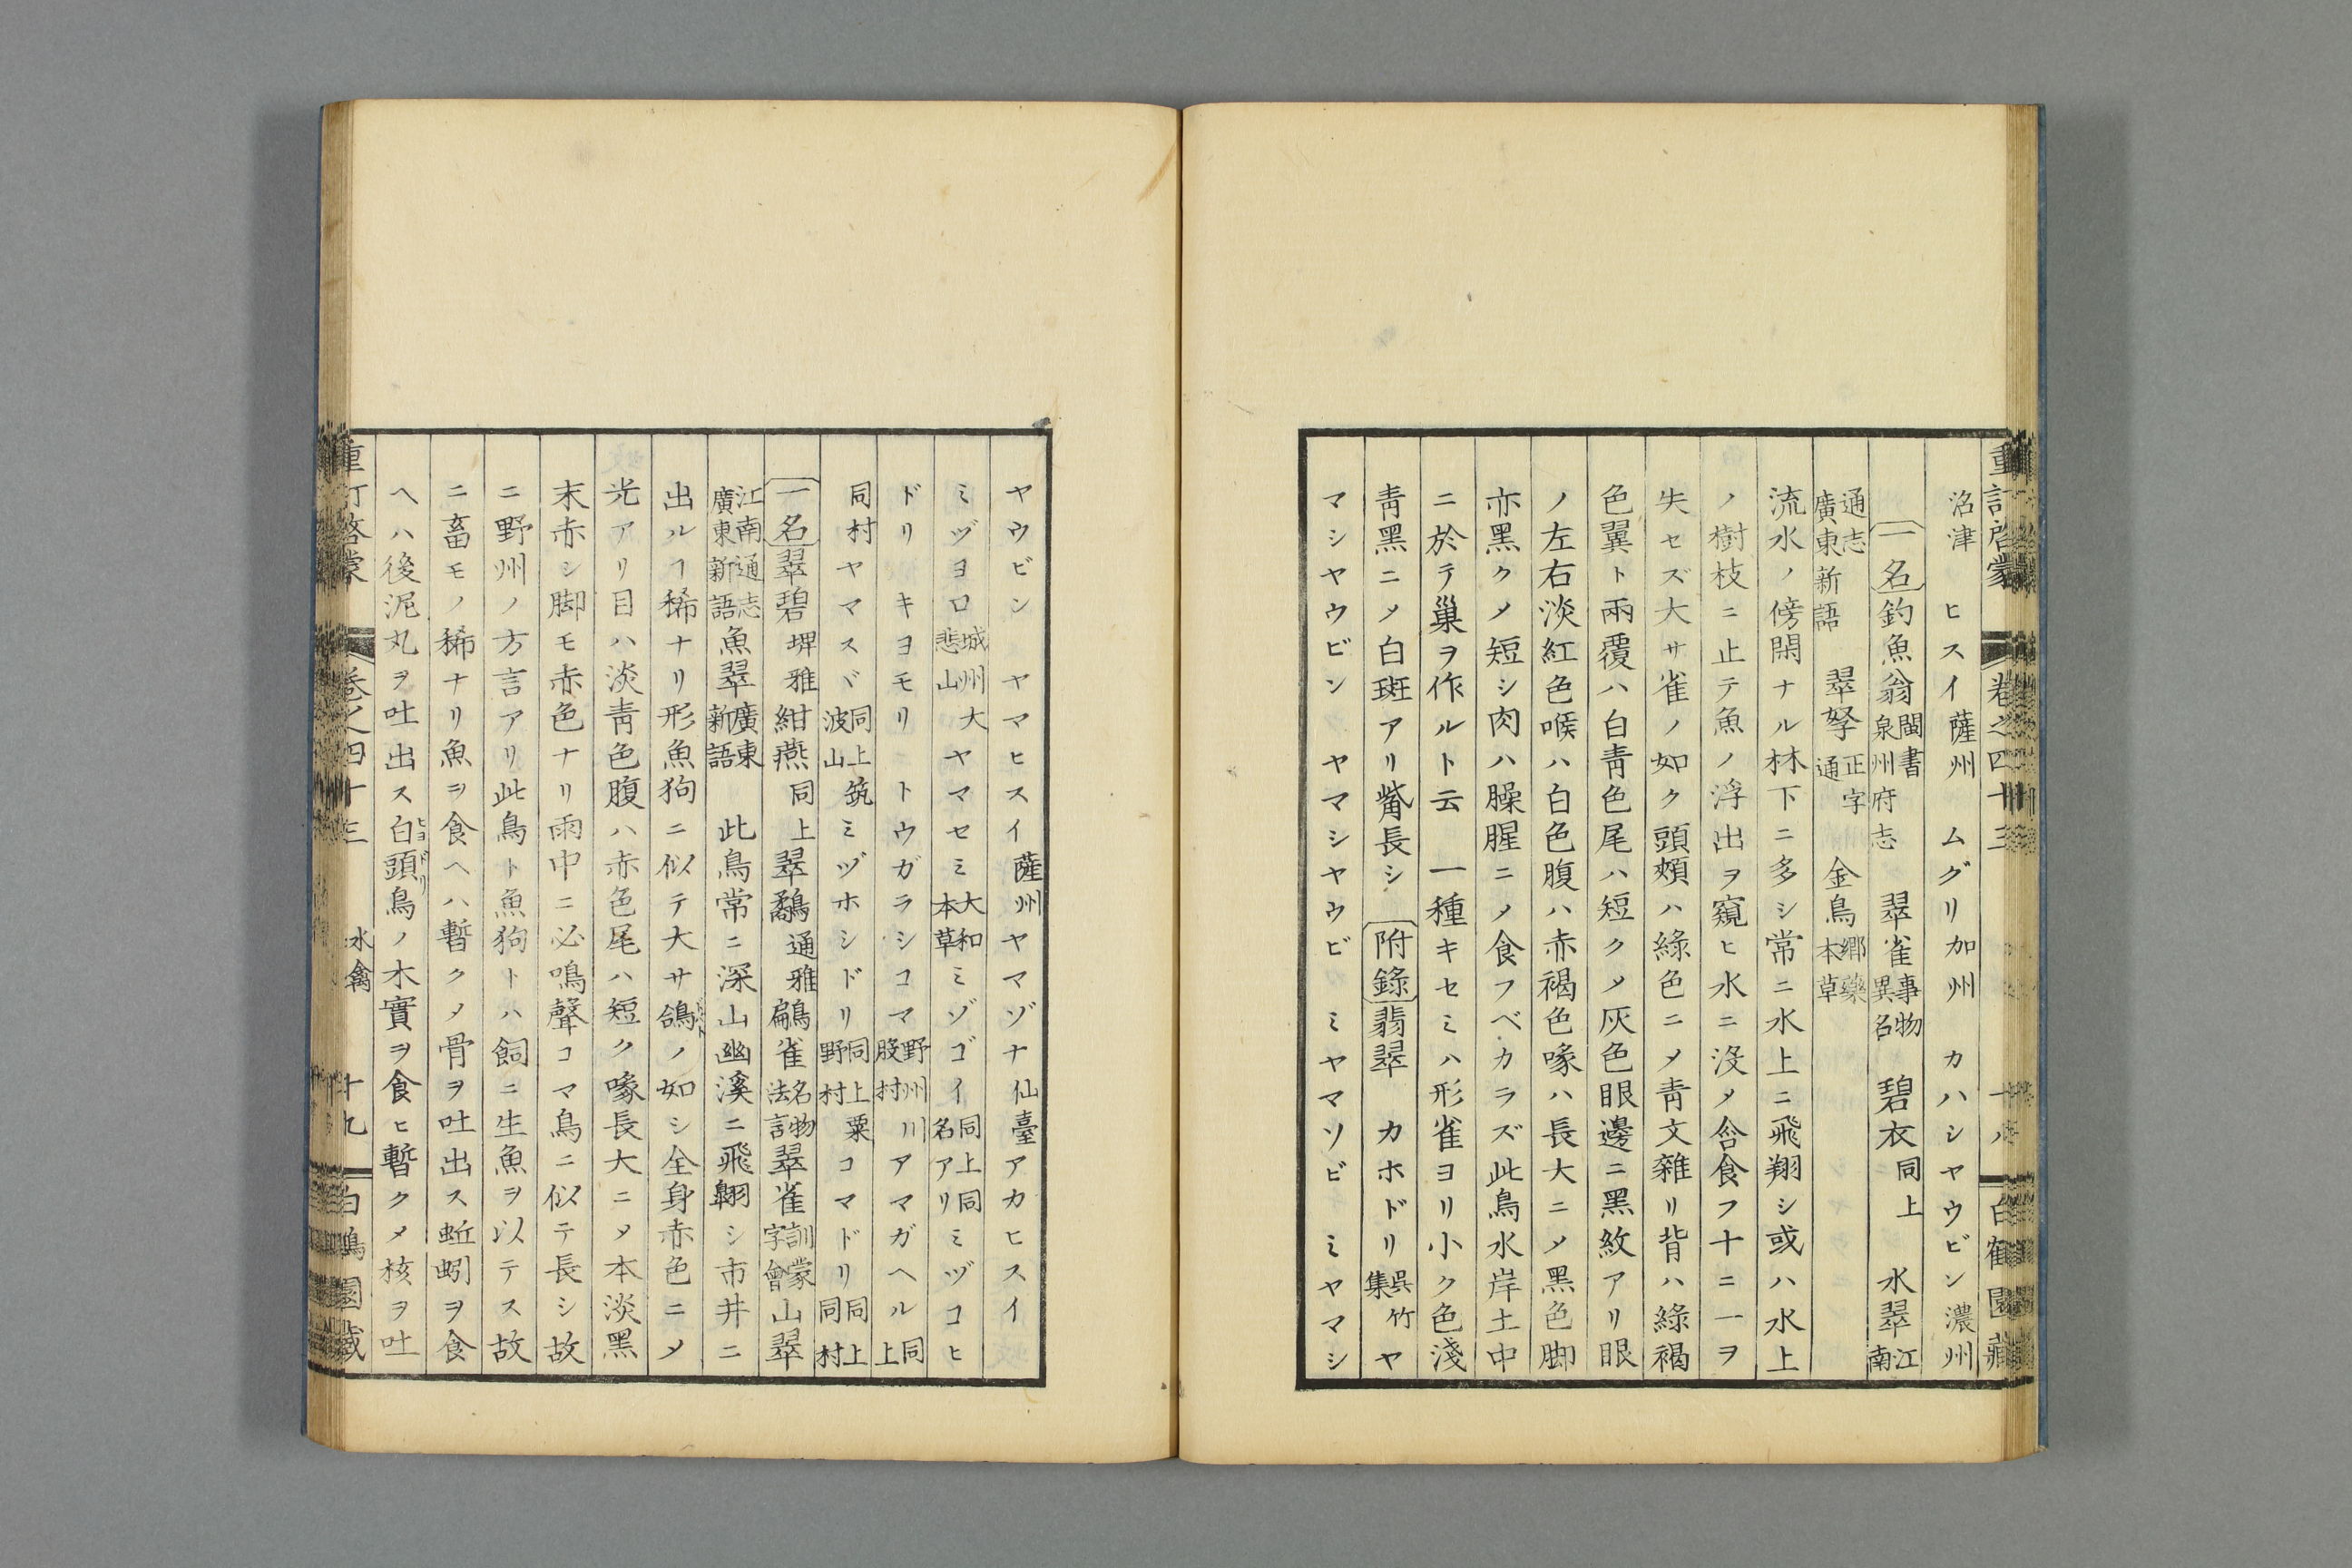 重訂啓蒙 卷之四十三 十八 白鶴園藏
沼津 ヒスイ薩州 ムグリ加州 カハシヤウビン濃州
一名釣魚翁閩書泉州府志 翠雀事物異名 碧衣同上 水翠江南
通志廣東新語 翠孥正字通 金鳥郷藥本草
流水ノ傍閑ナル林下ニ多シ常ニ水上ニ飛翔シ或ハ水上
ノ樹枝ニ止テ魚ノ浮出ヲ窺ヒ水ニ沒メ含食フ十ニ一ヲ
失セズ大サ雀ノ如ク頭頰ハ綠色ニメ靑文雜リ背ハ綠褐
色翼ト兩覆ハ白靑色尾ハ短クメ灰色眼邊ニ黑紋アリ眼
ノ左右淡紅色喉ハ白色腹ハ赤褐色喙ハ長大ニメ黑色脚
亦黑クメ短シ肉ハ臊腥ニメ食フベカラズ此鳥水岸土中
ニ於テ巢ヲ作ルト云 一種キセミハ形雀ヨリ小ク色淺
靑黑ニメ白斑アリ觜長シ 附錄翡翠 カホドリ呉竹集ヤ
マシヤウビン ヤマシヤウビ ミヤマソビ ミヤマシ
ヤウビン ヤマヒスイ薩州ヤマゾナ仙臺アカヒスイ
ミヅヨロ城州悲山大ヤマセミ大和本草ミゾゴイ同上同名アリミヅコヒ
ドリ キヨモリ トウガラシコマ野州股村川アマガヘル同上
同村ヤマスバ同上波山筑ミヅホシドリ同上野村粟コマドリ同上同村
一名翠碧埤雅紺燕同上翠鷸通雅鷫雀名物法言翠雀訓蒙字會山翠
江南通志廣東新語魚翠廣東新語 此鳥常ニ深山幽溪ニ飛翺シ市井ニ
出ルヿ稀ナリ形魚狗ニ似テ大サ鴿ノ如シ全身赤色ニメ
光アリ目ハ淡靑色腹ハ赤色尾ハ短ク喙長大ニメ本淡黑
末赤シ脚モ赤色ナリ雨中ニ必鳴聲コマ鳥ニ似テ長シ故
ニ野州ノ方言アリ此鳥ト魚狗トハ飼ニ生魚ヲ以テス故
ニ畜モノ稀ナリ魚ヲ食ヘハ暫クメ骨ヲ吐出ス蚯蚓ヲ食
ヘハ後泥丸ヲ吐出ス白頭鳥ノ木實ヲ食ヒ暫クメ核ヲ吐
重訂啓蒙 卷之四十三 水禽 十九 白鶴園藏